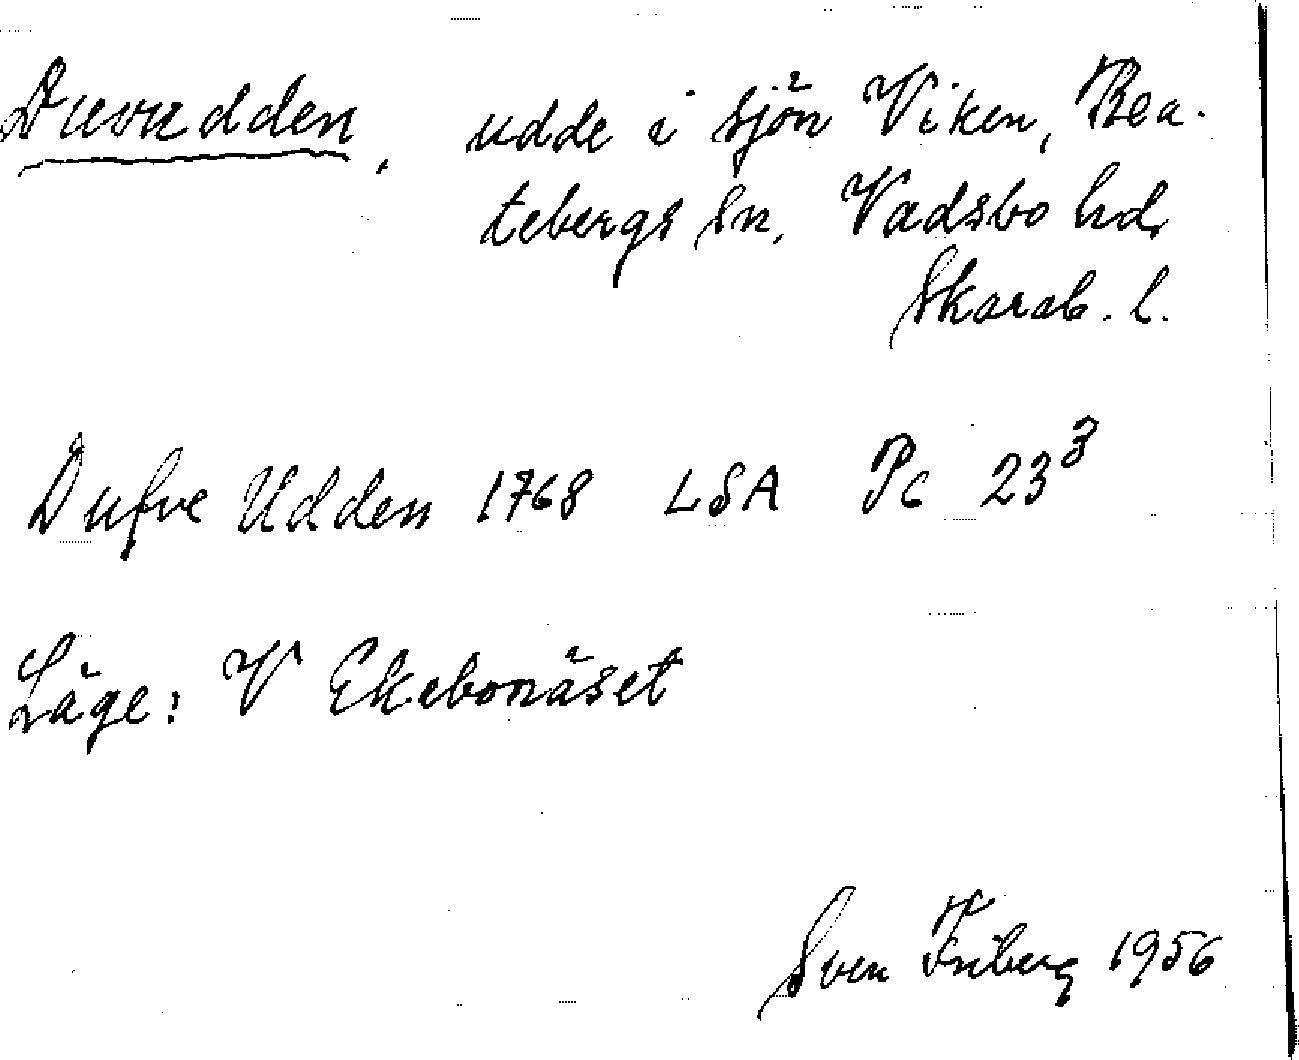 Duvudden, udde i sjön Viken, Bea-
tebergs sn, Vadsbo hd,
Skarab. l.
Dufve Udden 1768 LSA Pc 23³
Läge: V Ekebonäset
Sven Friberg 1956